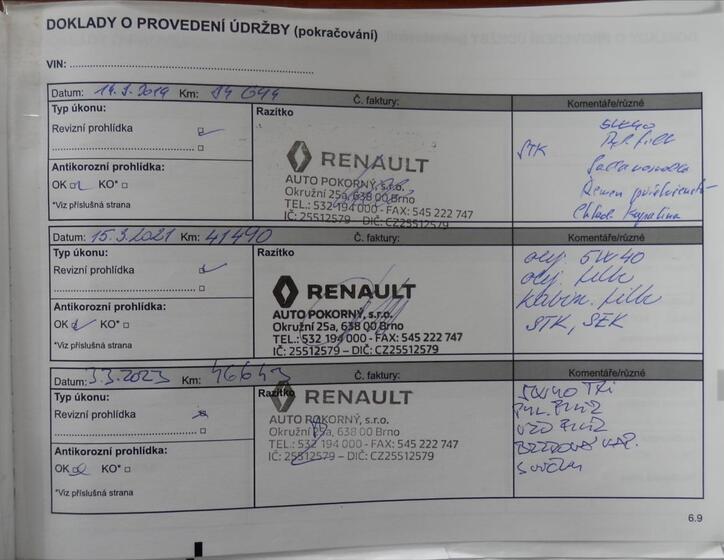 DOKLADY O PROVEDENÍ ÚDRŽBY (pokračování)
VIN:
Datum: Km: Č. faktury: Komentáře/různé
Typ úkonu: Razítko
Revizní prohlídka
5W40
STK
RENAULT
AUTO POKORNÝ, s.r.o.
Okružní 25a, 638 00 Brno
TEL.: 532 194 000 - FAX: 545 222 747
IČ: 25512579 - DIČ: CZ25512579
Antikorozní prohlídka:
OK KO*
*Viz příslušná strana
Datum: 15.3.2021 Km: 41490 Č. faktury: Komentáře/různé
Typ úkonu: Razítko
Revizní prohlídka
olej 5W40
olej. filtr
kabin. filtr
STK, SEK
RENAULT
AUTO POKORNÝ, s.r.o.
Okružní 25a, 638 00 Brno
TEL.: 532 194 000 - FAX: 545 222 747
IČ: 25512579 - DIČ: CZ25512579
Antikorozní prohlídka:
OK KO*
*Viz příslušná strana
Datum: 3.3.2023 Km: 46643 Č. faktury: Komentáře/různé
Typ úkonu: Razítko
Revizní prohlídka
5W40
RENAULT
AUTO POKORNÝ, s.r.o.
Okružní 25a, 638 00 Brno
TEL.: 532 194 000 - FAX: 545 222 747
IČ: 25512579 - DIČ: CZ25512579
Antikorozní prohlídka:
OK KO*
*Viz příslušná strana
6.9